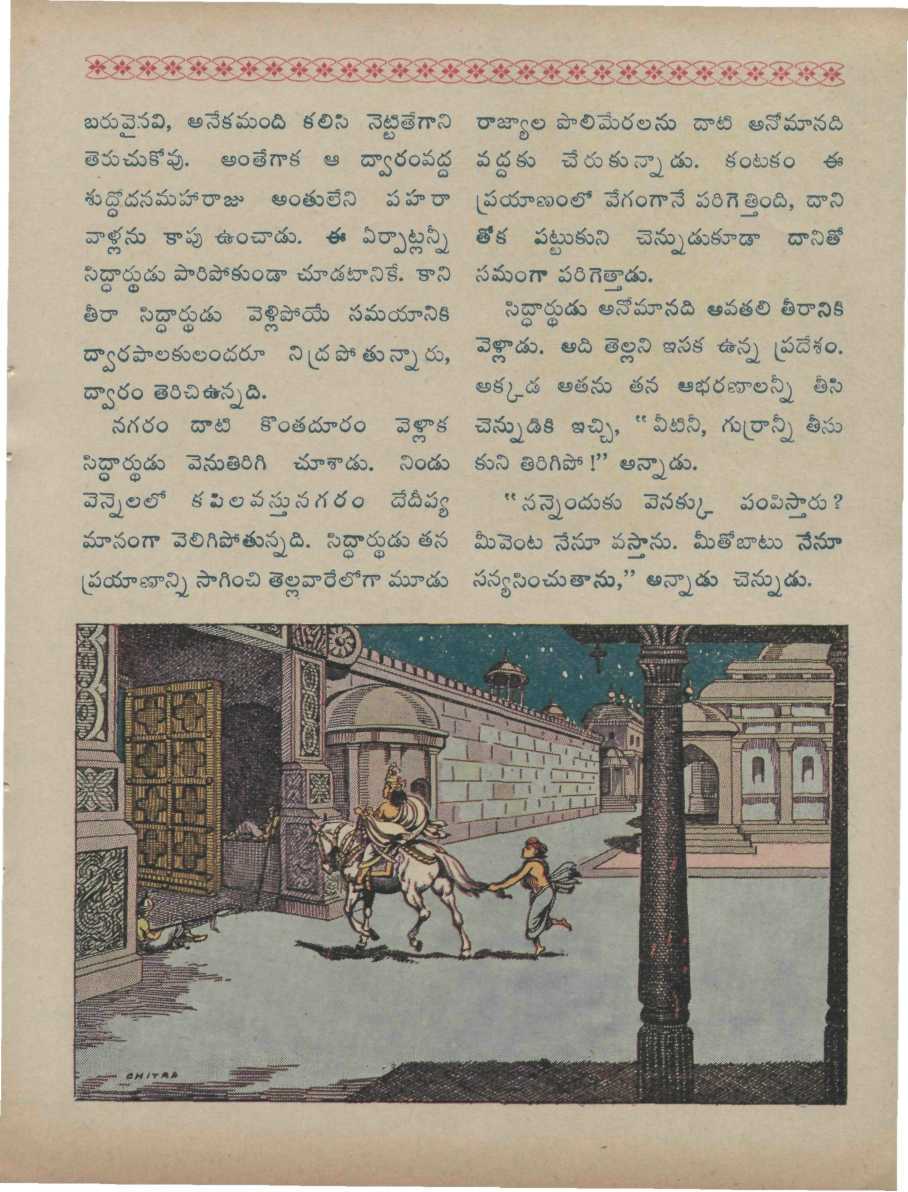 బరువైనవి, అనేకమంది కలిసి నెట్టితేగాని
తెరుచుకోవు. అంతేగాక ఆ ద్వారంవద్ద
శుద్ధోదనమహారాజు అంతులేని పహరా
వాళ్లను కాపు ఉంచాడు. ఈ ఏర్పాట్లన్నీ
సిద్ధార్థుడు పారిపోకుండా చూడటానికే. కాని
తీరా సిద్ధార్థుడు వెళ్లిపోయే సమయానికి
ద్వారపాలకులందరూ నిద్రపోతున్నారు,
ద్వారం తెరిచిఉన్నది.
నగరం దాటి కొంతదూరం వెళ్లాక
సిద్ధార్థుడు వెనుతిరిగి చూశాడు. నిండు
వెన్నెలలో కపిలవస్తునగరం దేదీప్య
మానంగా వెలిగిపోతున్నది. సిద్ధార్థుడు తన
ప్రయాణాన్ని సాగించి తెల్లవారేలోగా మూడు
రాజ్యాల పొలిమేరలను దాటి అనోమానది
వద్దకు చేరుకున్నాడు. కంటకం ఈ
ప్రయాణంలో వేగంగానే పరిగెత్తింది, దాని
తోక పట్టుకుని చెన్నుడుకూడా దానితో
సమంగా పరిగెత్తాడు.
సిద్ధార్థుడు అనోమానది అవతలి తీరానికి
వెళ్లాడు. అది తెల్లని ఇసక ఉన్న ప్రదేశం.
అక్కడ అతను తన ఆభరణాలన్నీ తీసి
చెన్నుడికి ఇచ్చి, "వీటినీ, గుర్రాన్నీ తీసు
కుని తిరిగిపో!" అన్నాడు.
"నన్నెందుకు వెనక్కు పంపిస్తారు?
మీవెంట నేనూ వస్తాను. మీతోబాటు నేనూ
సన్యసించుతాను," అన్నాడు చెన్నుడు.
CHITRA